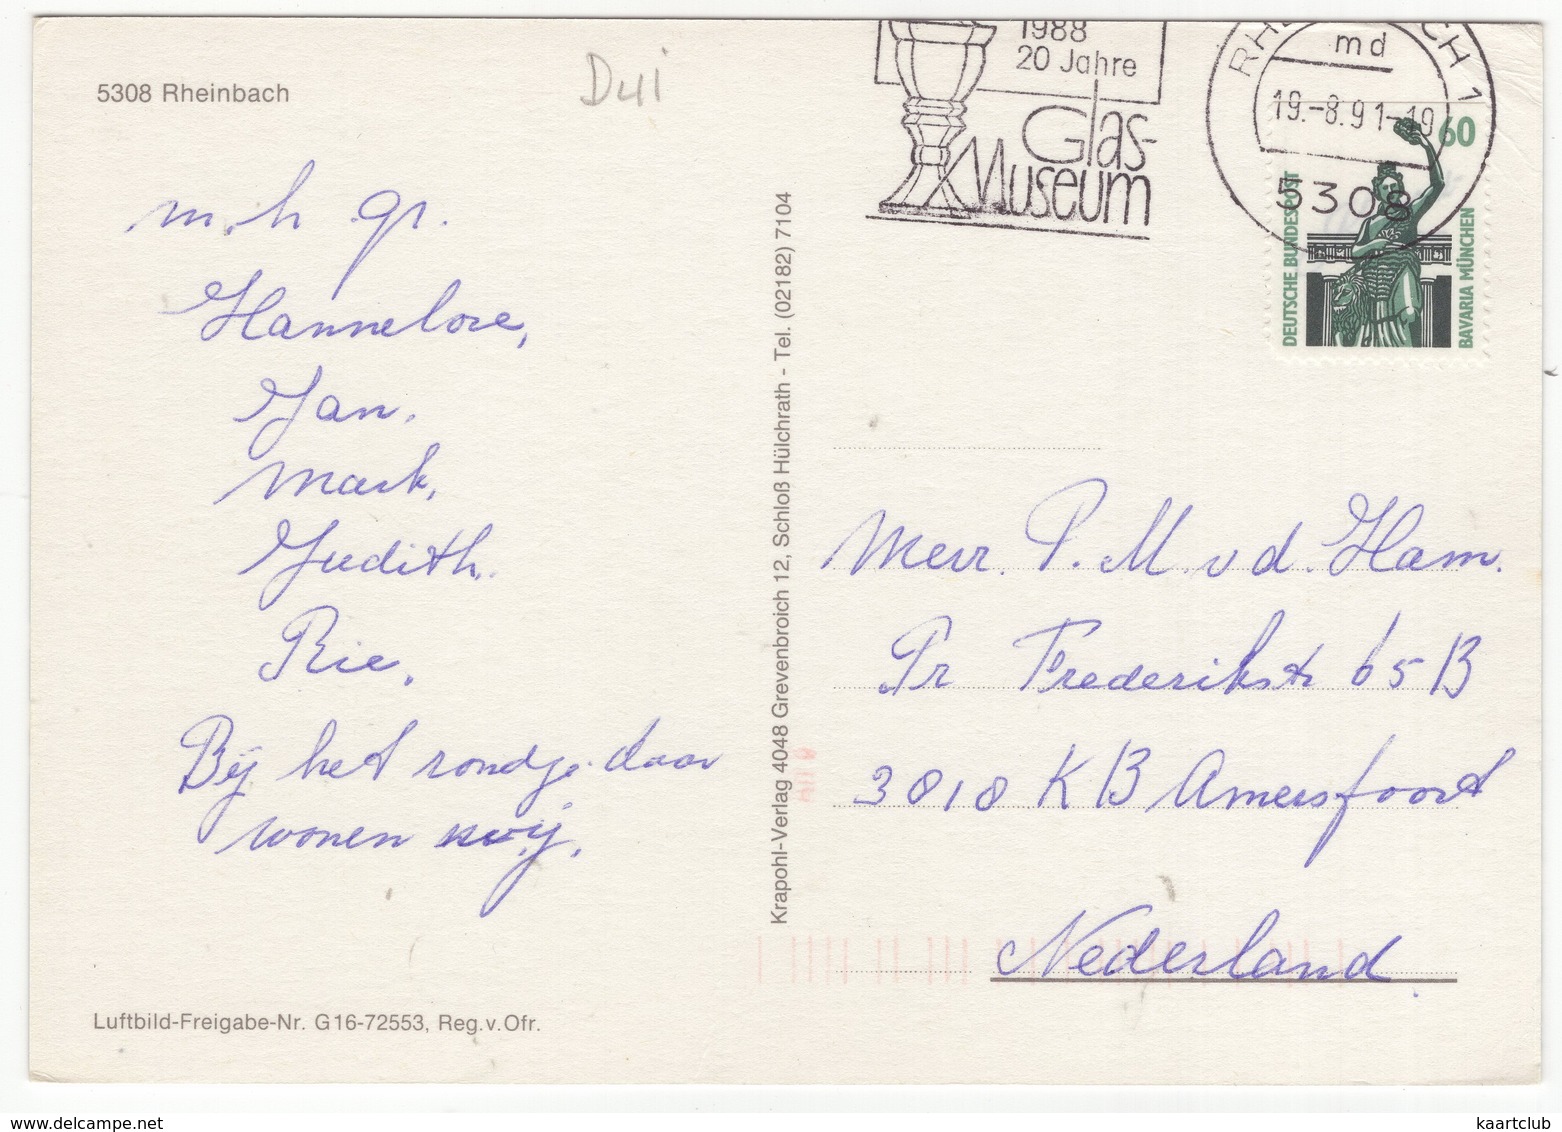 5308 Rheinbach
Dui
m. h. gr.
Hannelore,
Jan,
Mark,
Judith.
Rie.
Bij het rondje daar
wonen wij.
Luftbild-Freigabe-Nr. G 16-72553, Reg.v.Ofr.
Krapohl-Verlag 4048 Grevenbroich 12, Schloß Hülchrath - Tel. (02182) 7104
1988
20 Jahre
Glas-
Museum
md
19.-8.91-19
5308
60
DEUTSCHE BUNDESPOST
BAVARIA MÜNCHEN
Mevr. P. M. v d. Ham.
Pr Frederikstr 65 B
3818 KB Amersfoort
Nederland
kaartclub